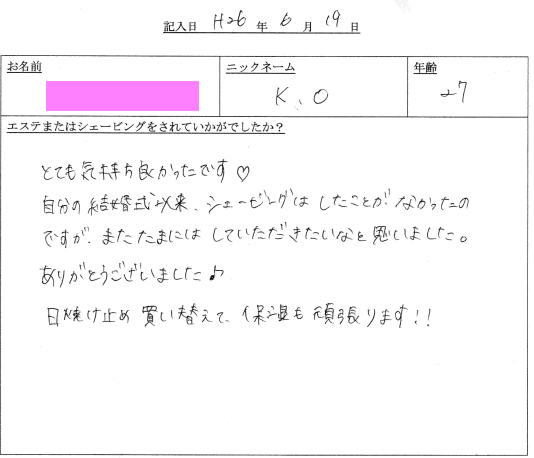 記入日 H26 年 6 月 19 日
お名前 ニックネーム 年齢
K、O 27
エステまたはシェービングをされていかがでしたか？
とても気持ち良かったです♡
自分の結婚式以来、シェービングはしたことがなかったの
ですが、またたまにはしていただきたいなと思いました。
ありがとうございました♪
日焼け止め買い替えて、保湿も頑張ります!!